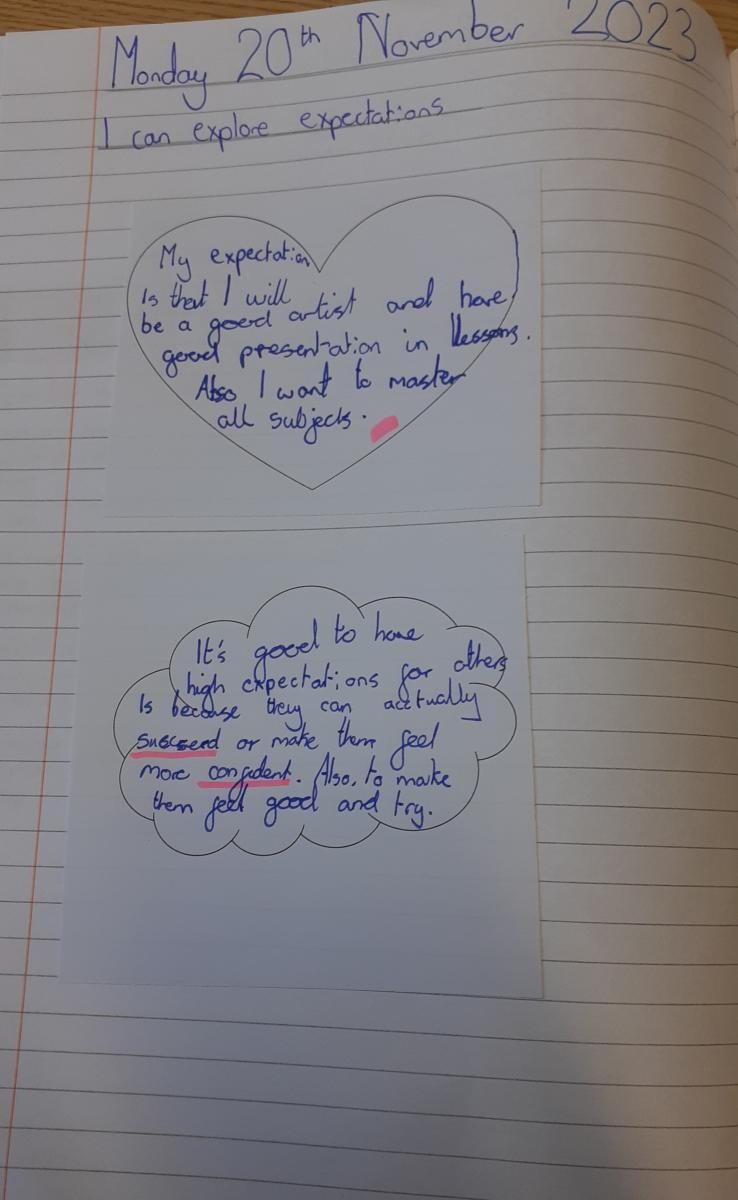 Monday 20th November 2023
I can explore expectations
My expectation
Is that I will
be a good artist and have
good presentation in lessons.
Also I want to master
all subjects.
It's good to have
high expectations for others
Is because they can acctually
sucseed or make them feel
more confedent. Also, to make
them feel good and try.